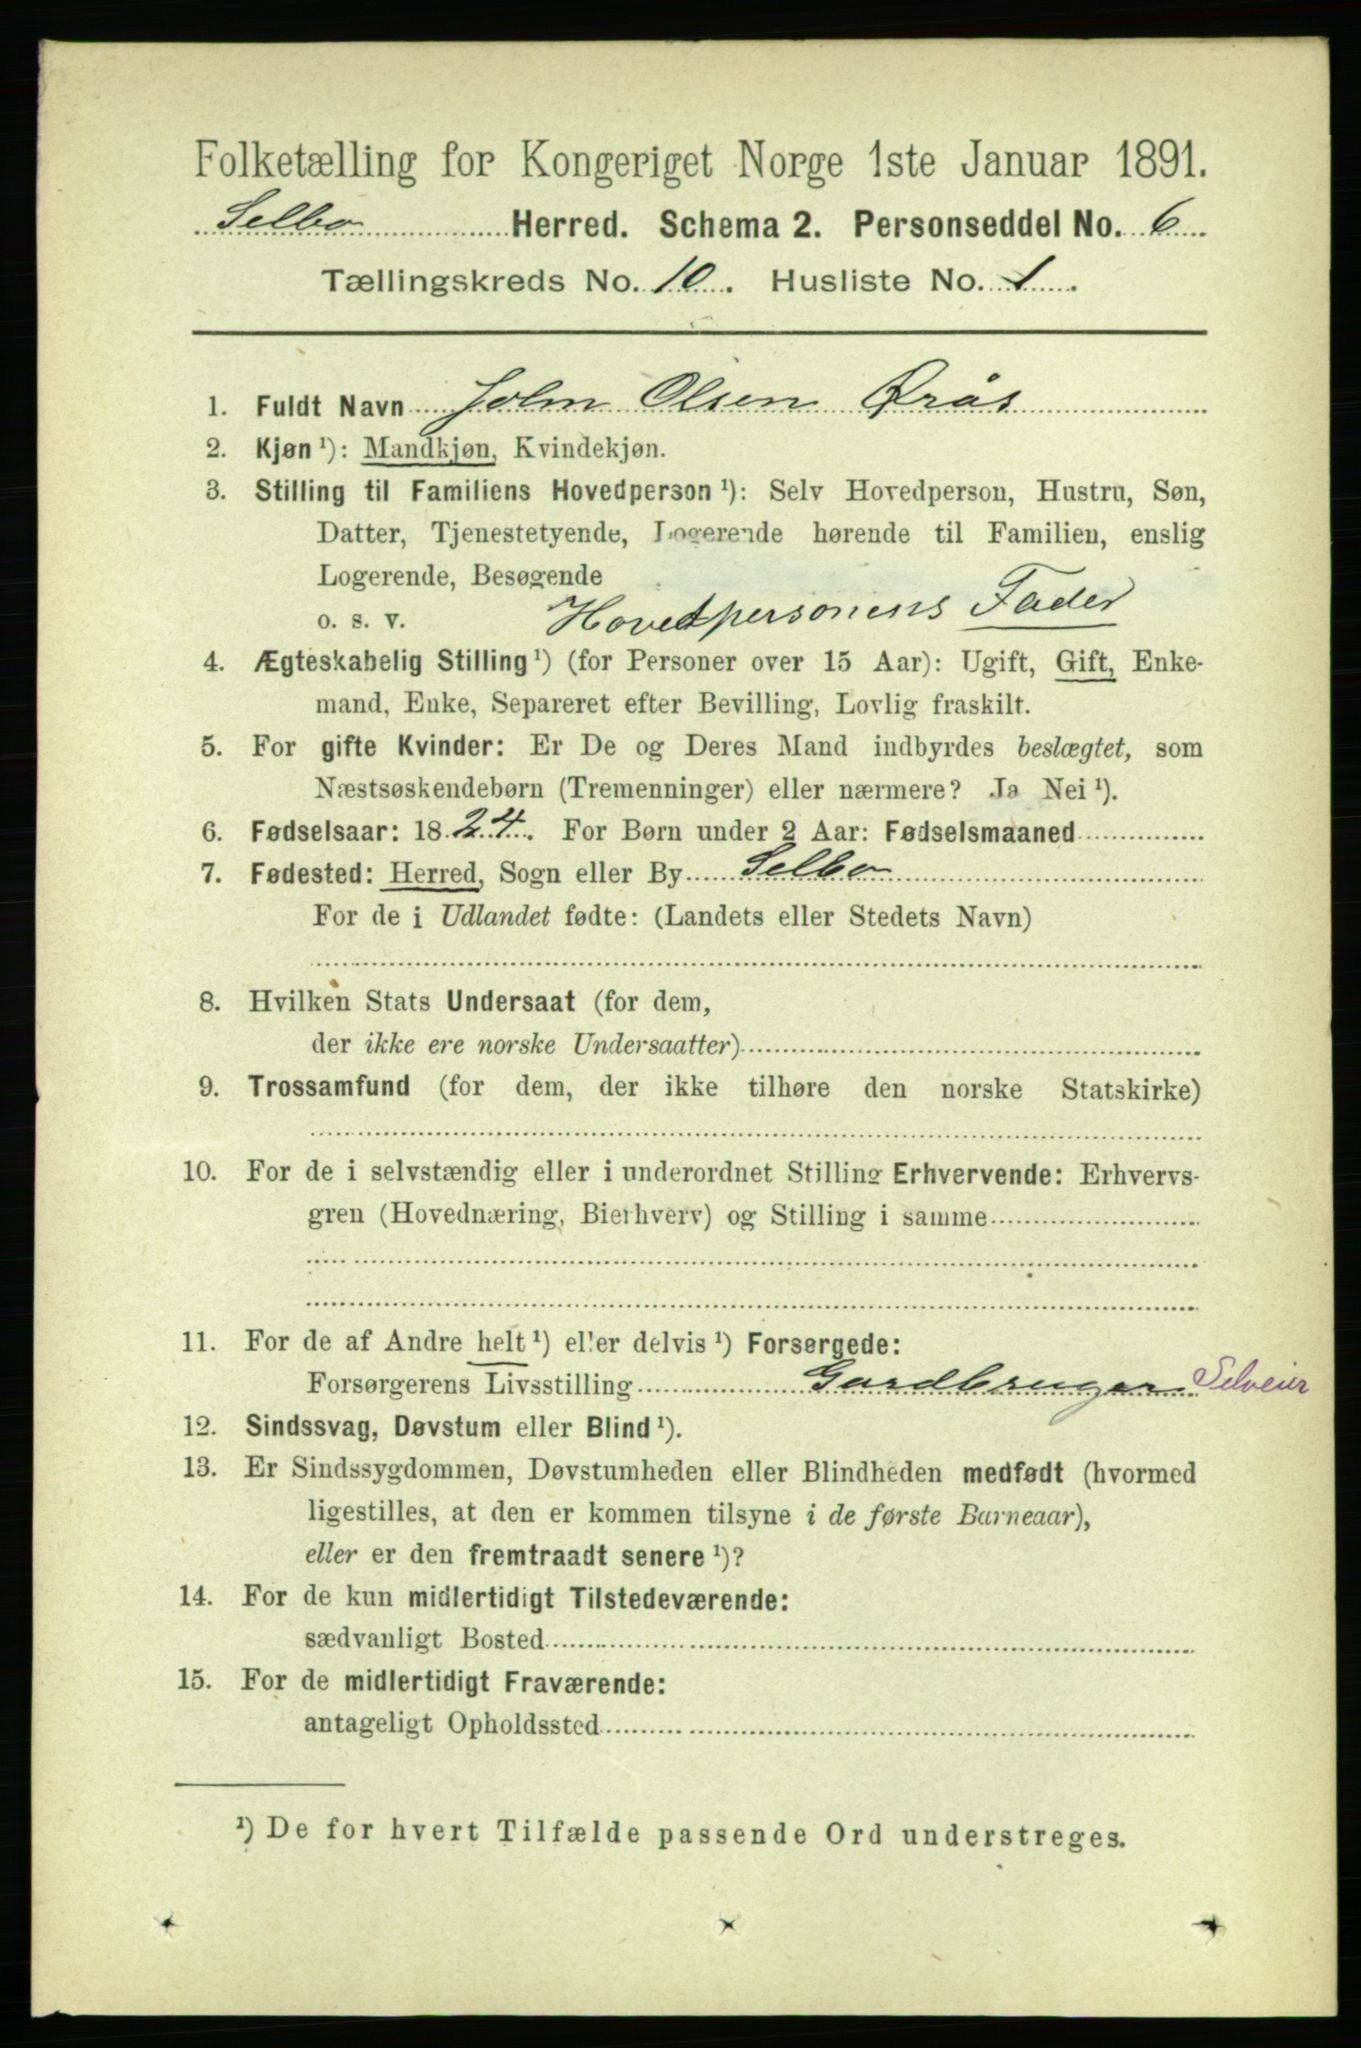 Folketælling for Kongeriget Norge 1ste Januar 1891.
Selbo Herred. Schema 2. Personseddel No. 6
Tællingskreds No. 10. Husliste No. 1.
1. Fuldt Navn John Olsen Ørås
2. Kjøn ¹): Mandkjøn, Kvindekjøn.
3. Stilling til Familiens Hovedperson ¹): Selv Hovedperson, Hustru, Søn,
Datter, Tjenestetyende, Logerende hørende til Familien, enslig
Logerende, Besøgende
o. s. v. Hovedpersonens Fader
4. Ægteskabelig Stilling ¹) (for Personer over 15 Aar): Ugift, Gift, Enke-
mand, Enke, Separeret efter Bevilling, Lovlig fraskilt.
5. For gifte Kvinder: Er De og Deres Mand indbyrdes beslægtet, som
Næstsøskendebørn (Tremenninger) eller nærmere? Ja Nei ¹).
6. Fødselsaar: 1824. For Børn under 2 Aar: Fødselsmaaned
7. Fødested: Herred, Sogn eller By Selbo
For de i Udlandet fødte: (Landets eller Stedets Navn)
8. Hvilken Stats Undersaat (for dem,
der ikke ere norske Undersaatter)
9. Trossamfund (for dem, der ikke tilhøre den norske Statskirke)
10. For de i selvstændig eller i underordnet Stilling Erhvervende: Erhvervs-
gren (Hovednæring, Bierhverv) og Stilling i samme
11. For de af Andre helt ¹) eller delvis ¹) Forsørgede:
Forsørgerens Livsstilling Gardbruger Selveier
12. Sindssvag, Døvstum eller Blind ¹).
13. Er Sindssygdommen, Døvstumheden eller Blindheden medfødt (hvormed
ligestilles, at den er kommen tilsyne i de første Barneaar),
eller er den fremtraadt senere ¹)?
14. For de kun midlertidigt Tilstedeværende:
sædvanligt Bosted
15. For de midlertidigt Fraværende:
antageligt Opholdssted
¹) De for hvert Tilfælde passende Ord understreges.